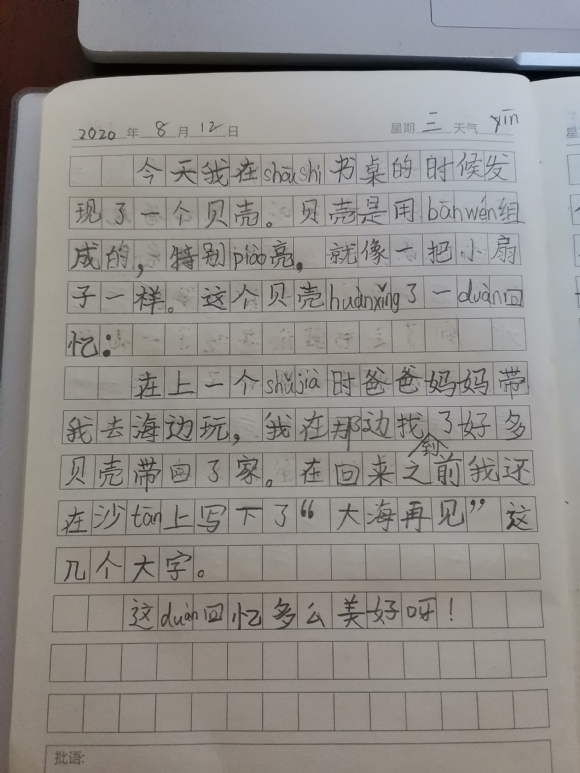 2020年8月12日 星期三 天气yīn
今天我在shōushi书桌的时候发
现了一个贝壳。贝壳是用bānwén组
成的，特别piào亮，就像一把小扇
子一样。这个贝壳huànxǐng了一duàn回
忆：
在上一个shǔjià时爸爸妈妈带
我去海边玩，我在那边找到了好多
贝壳带回了家。在回来之前我还
在沙tān上写下了“大海再见”这
几个大字。
这duàn回忆多么美好呀！
批语: